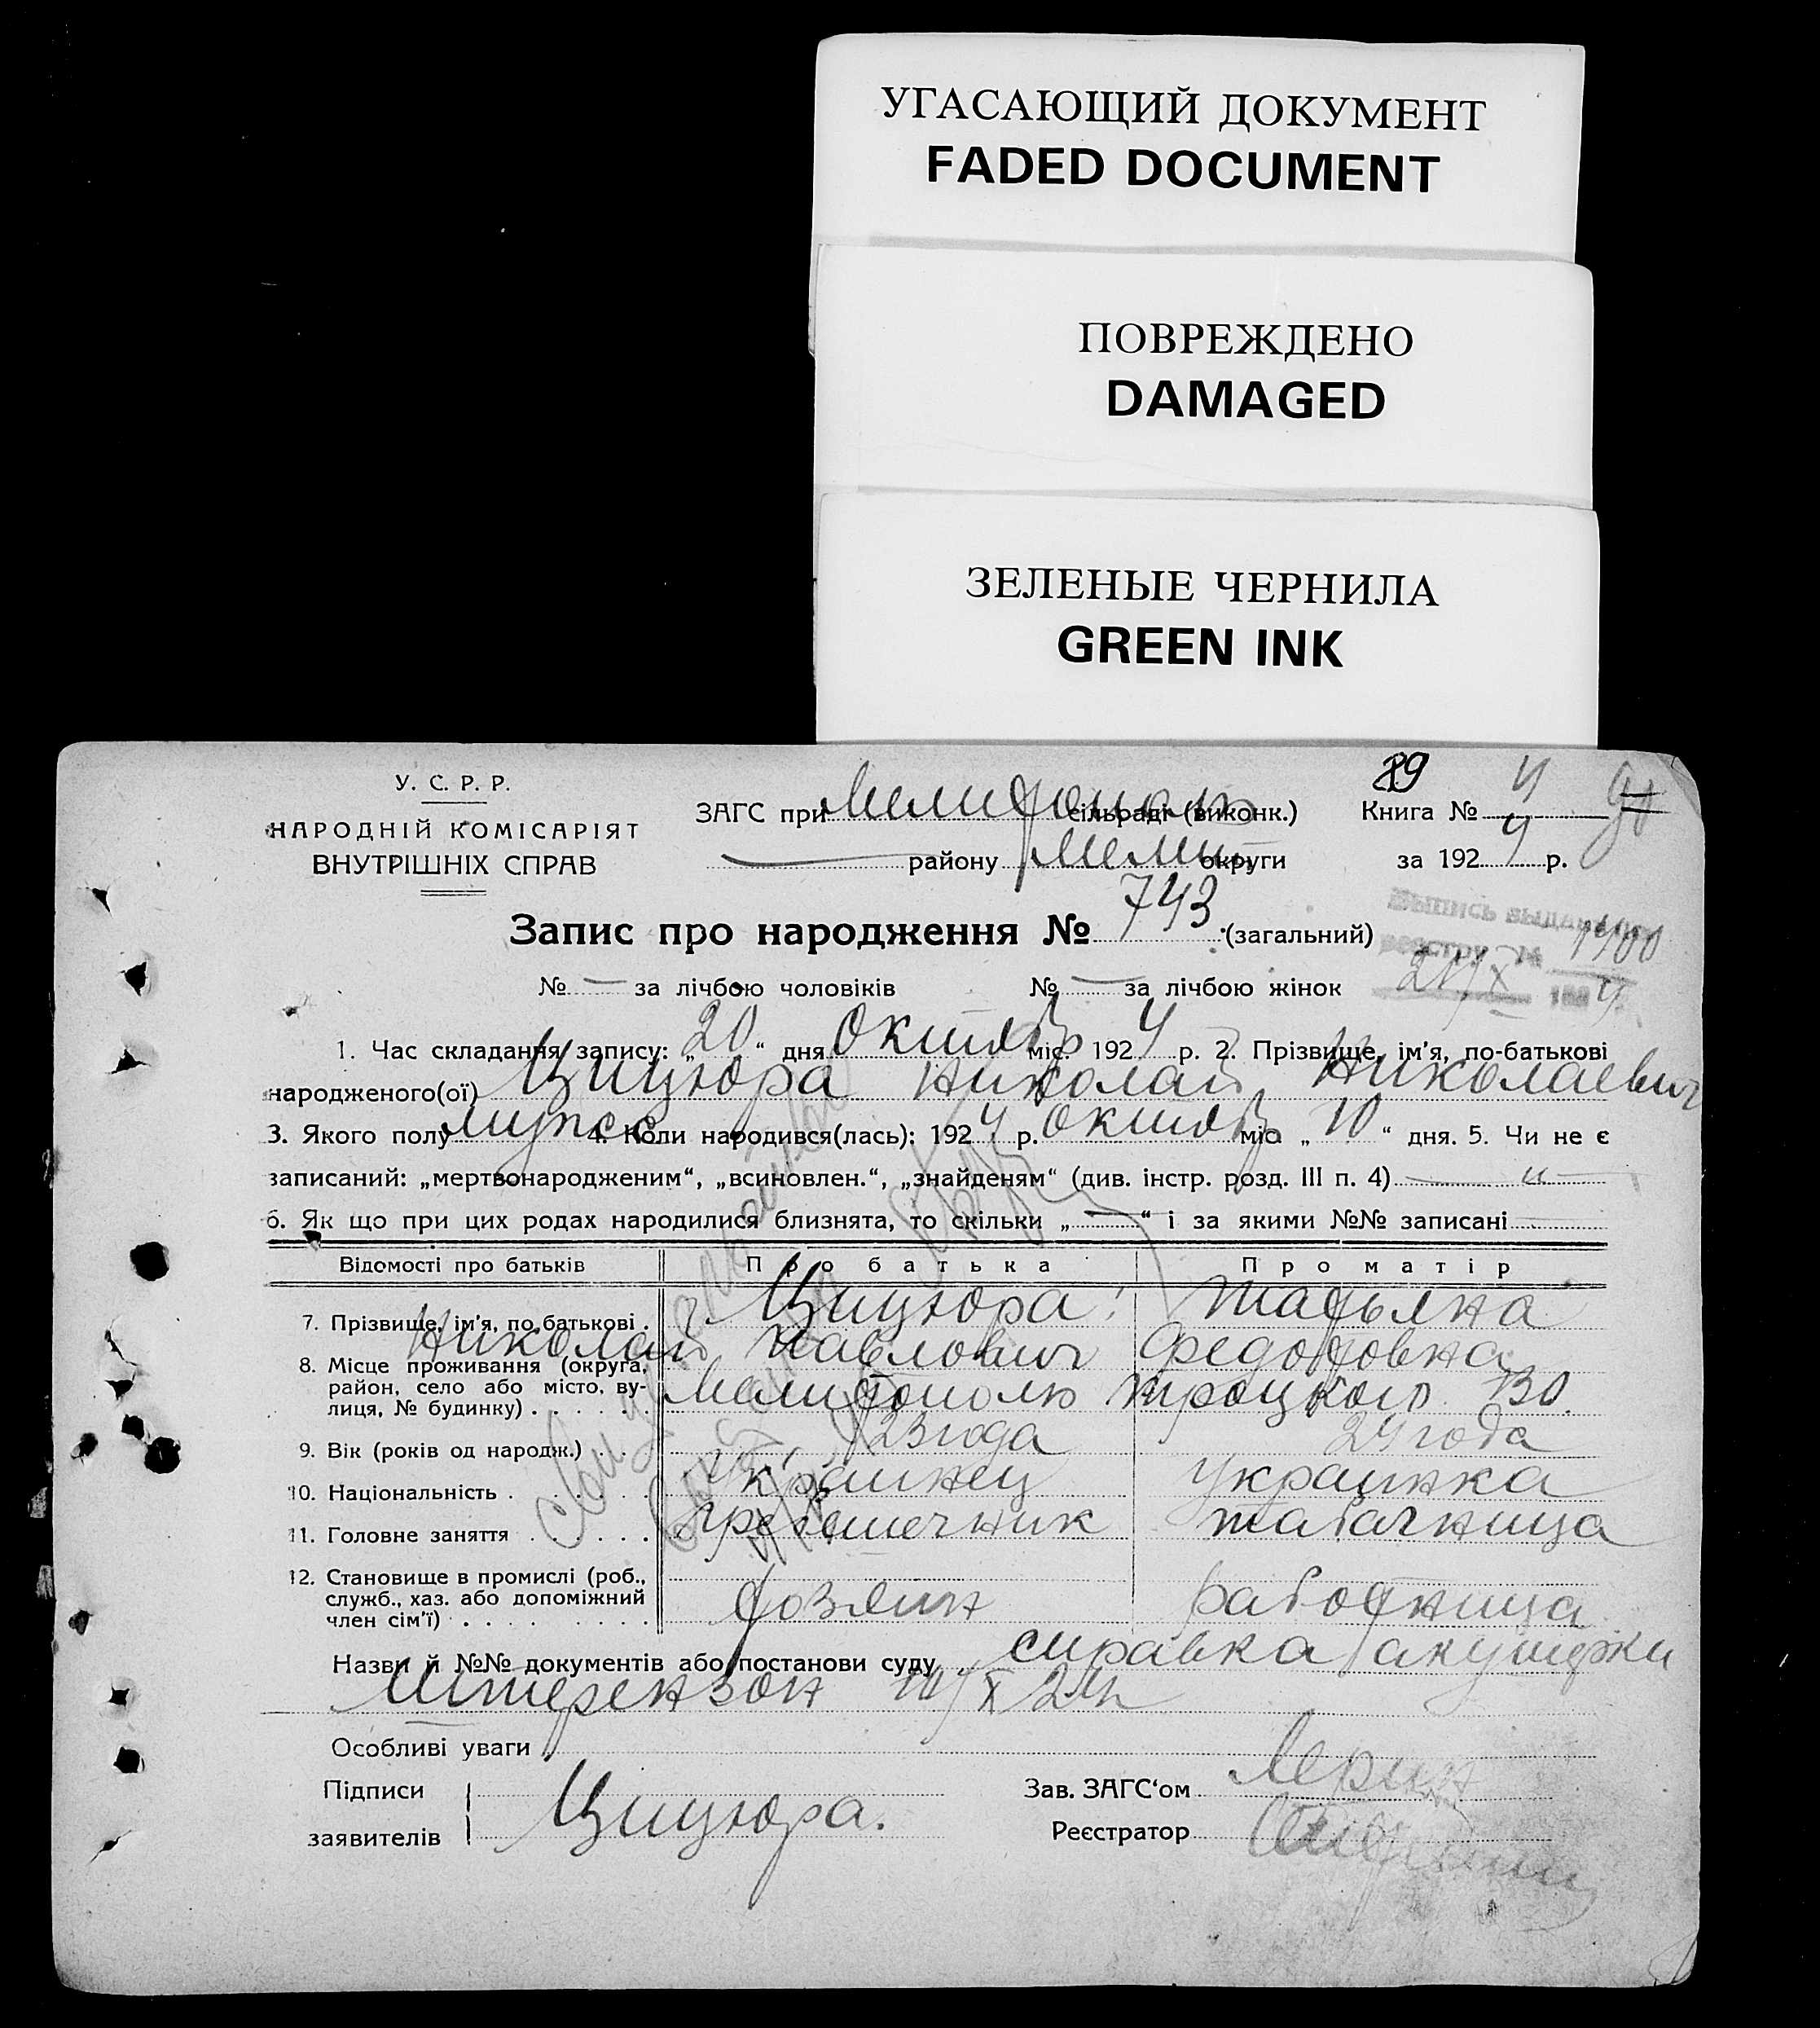 УГАСАЮЩИЙ ДОКУМЕНТ
FADED DOCUMENT
ПОВРЕЖДЕНО
DAMAGED
ЗЕЛЕНЫЕ ЧЕРНИЛА
GREEN INK
У. С. Р. Р.
НАРОДНІЙ КОМІСАРІЯТ
ВНУТРІШНІХ СПРАВ
ЗАГС при Мелитополь сільраді (виконк.) Книга № 4
району Мелит округи за 1924 р.
Запис про народження № 743 (загальний)
Выпись выдана по
реестру № 1400
24/X 1924
№ — за лічбою чоловіків № — за лічбою жінок
1. Час складання запису: „20“ дня Октябр міс. 1924 р. 2. Прізвище, ім'я, по-батькові
народженого(ої) Цицюра Николай Николаевич
3. Якого полу мужс 4. Коли народився(лась): 1924 р. Октябр міс. „10“ дня. 5. Чи не є
записаний: „мертвонародженим“, „всиновлен.“, „знайденям“ (див. інстр. розд. III п. 4)
6. Як що при цих родах народилися близнята, то скільки „—“ і за якими №№ записані
Відомості про батьків Про батька Про матір
7. Прізвище, ім'я, по батькові . Цицюра Татьяна
Николай Павлович Федотовна
8. Місце проживання (округа, район, село або місто, вулиця, № будинку) . . . . Мелитополь Троцкого 130.
9. Вік (років од народж.) . 23 года 24 года
10. Національність . Украинец Украинка
11. Головне заняття . . . . гребешечник табачница
12. Становище в промислі (роб., служб., хаз. або допоміжний член сім'ї) . . . . хозяин работница
Назви й №№ документів або постанови суду . справка акушерки
Штерензон 10/X 24г
Особливі уваги
Підписи
заявителів Цицюра.
Зав. ЗАГС'ом
Реєстратор